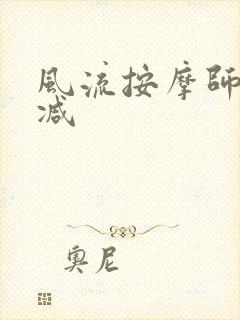 風流按摩師
减
奥尼